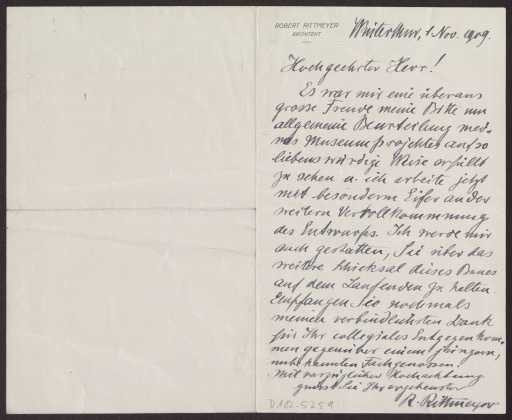 ROBERT RITTMEYER
ARCHITEKT
Winterthur, 1 Nov. 1909.
Hochgeehrter Herr!
Es war mir eine überaus
grosse Freude meine Bitte um
allgemeine Beurteilung mei-
nes Museumsprojektes auf so
liebenswürdige Weise erfüllt
zu sehen u. ich arbeite jetzt
mit besonderm Eifer an der
weitern Vervollkommnung
des Entwurfs. Ich werde mir
auch gestatten, Sie über das
weitere Schicksal dieses Baues
auf dem Laufenden zu halten.
Empfangen Sie nochmals
meinen verbindlichsten Dank
für Ihr collegiales Entgegenkom-
men gegenüber einem jüngern,
unbekannten Fachgenossen.
Mit vorzüglicher Hochachtung
grüsst Sie Ihr ergebenster
R. Rittmeyer
D 102-5259